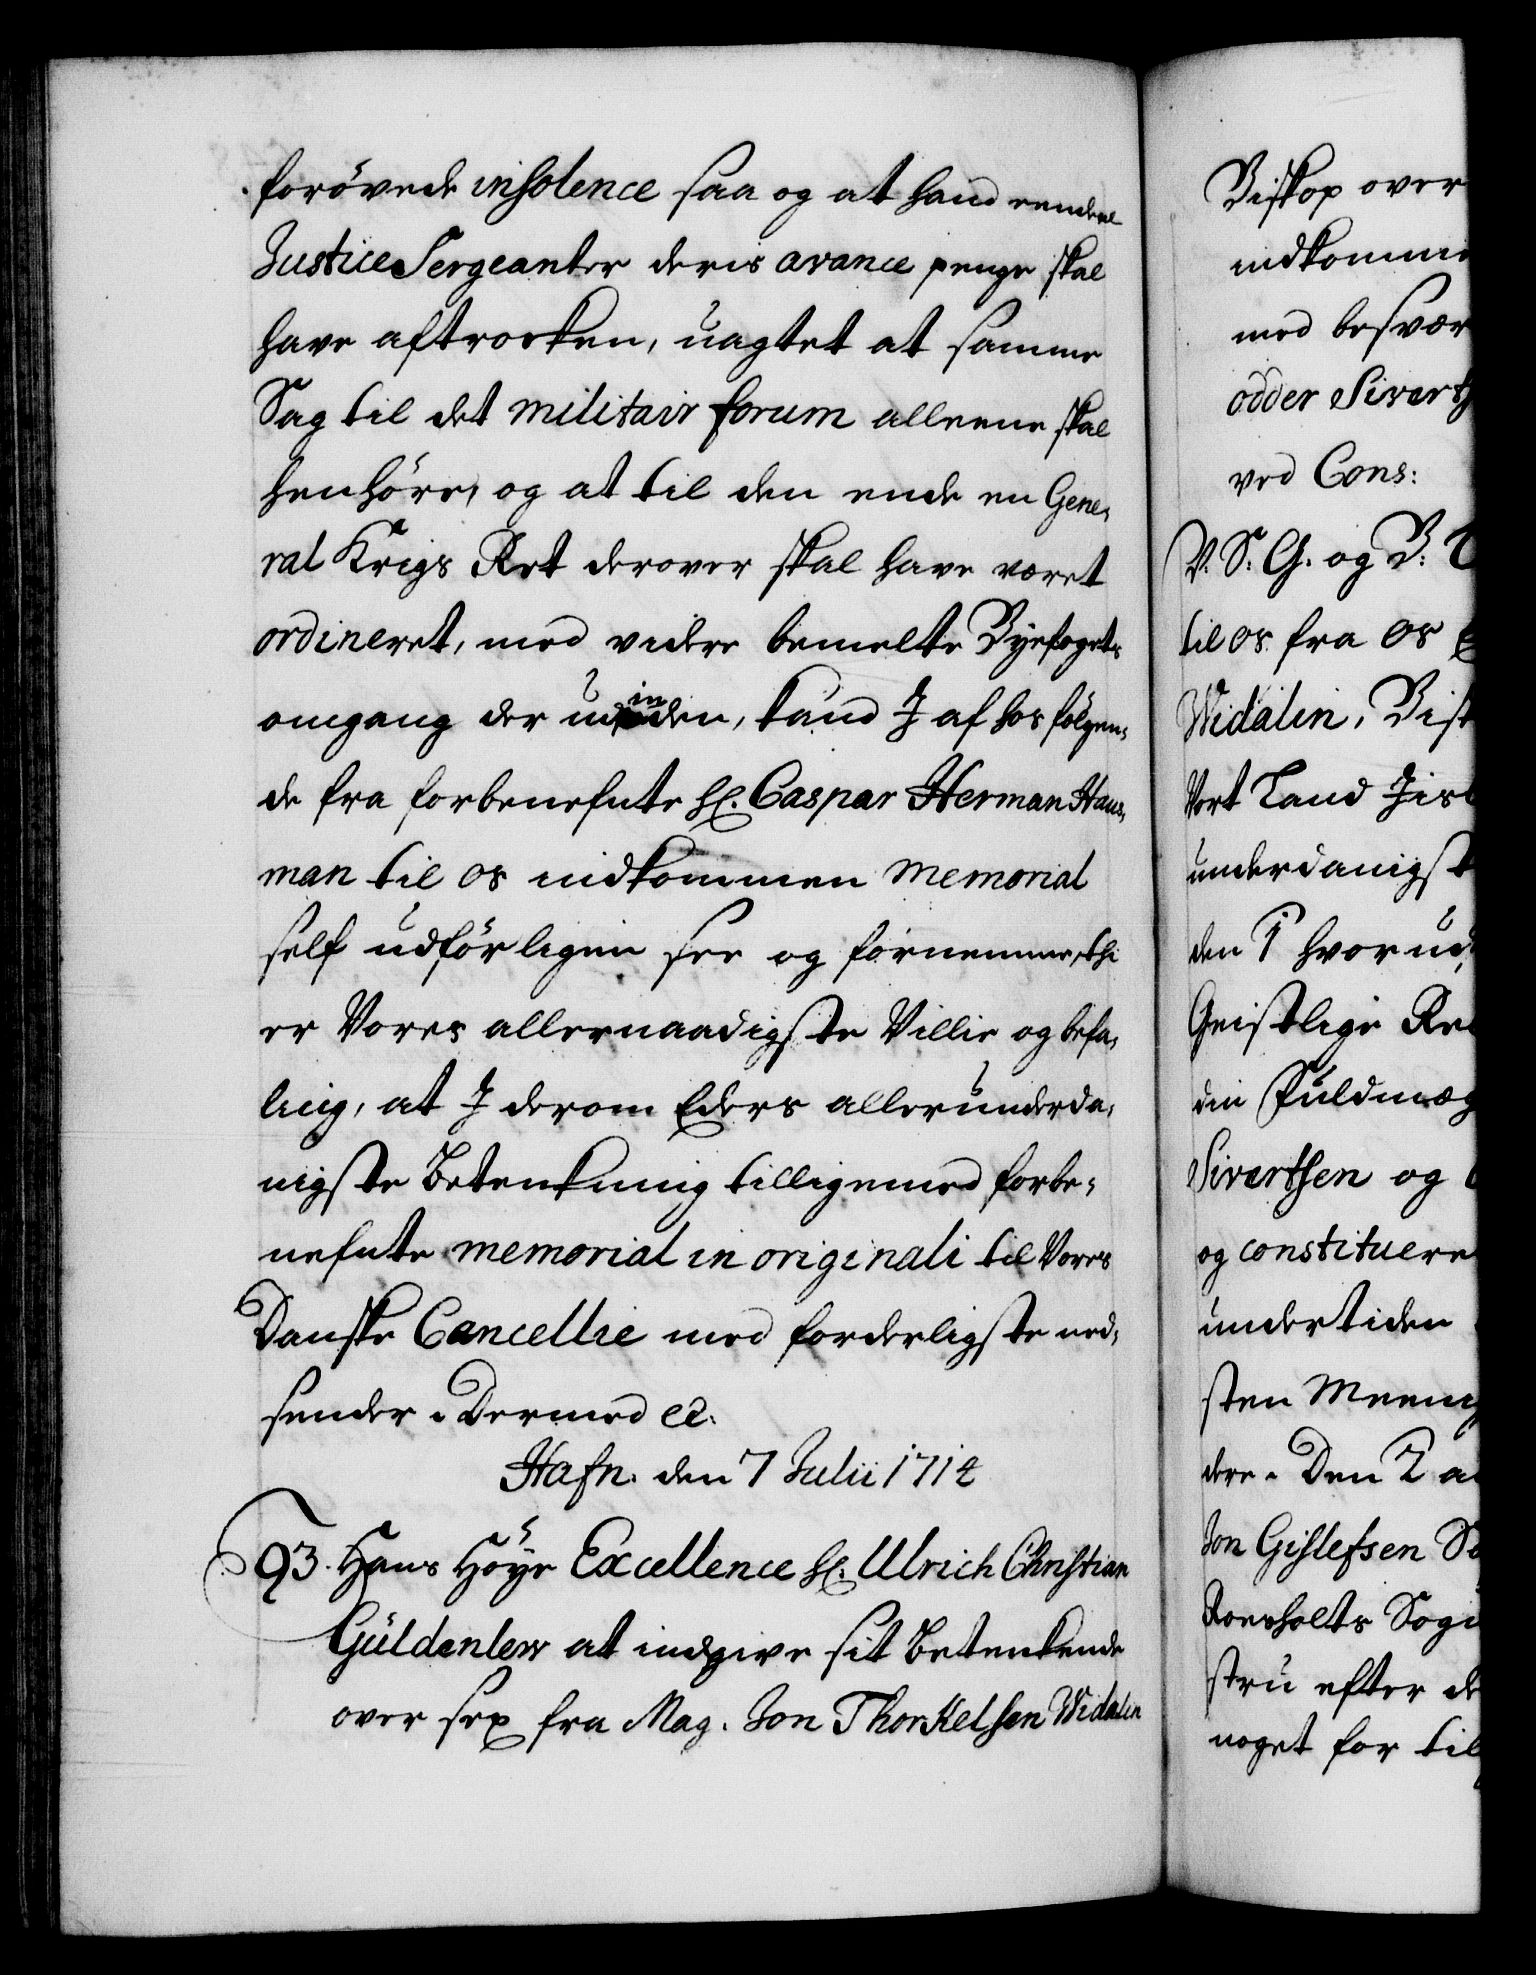 forövede insolence saa og at hand endeel
Justice Sergeanter deris avance penge skal
have aftrocken, uagtet at samme
Sag til det militair forum alleene skal
henhöre, og at til den ende en Gene,
ral Krigs Ret derover skal have været
ordineret, med videre bemelte Byefogets
omgang der udinden, kand I af hos fölgen,
de fra forbenefnte Hr. Caspar Herman Haus,
man til os indkommen memorial
self udförligen see og fornemme, thi
er Vores allernaadigste Villie og befa,
ling, at I derom Eders allerunderda,
nigste Betenkning tilligemed forbe,
nefnte memorial in originali til Vores
Danske Cancellie med forderligste ned,
sender. Dermed ec.
Hafn. den 7 Julii 1714
93. Hans Höye Excellence Hr. Ulrich Christian
Güldenlew at indgive sit Betenkende
over sex fra Mag. Jon Thorkelsen Widalin
Biskop over
indkomne
med besvær
odder Sivertz
ved Cons:
V. S. G. og B:
til os fra os
Widalin, Bisk
Vort Land Jisl
underdanigst
den 1 hvorud,
Geistlige Re
din Fuldmæg
Sivertsen og
og constituere
undertiden
sten Meenig
dere. Den 2 a
Jon Gislefsen
Roesholts Sogn
stru efter de
noget for til